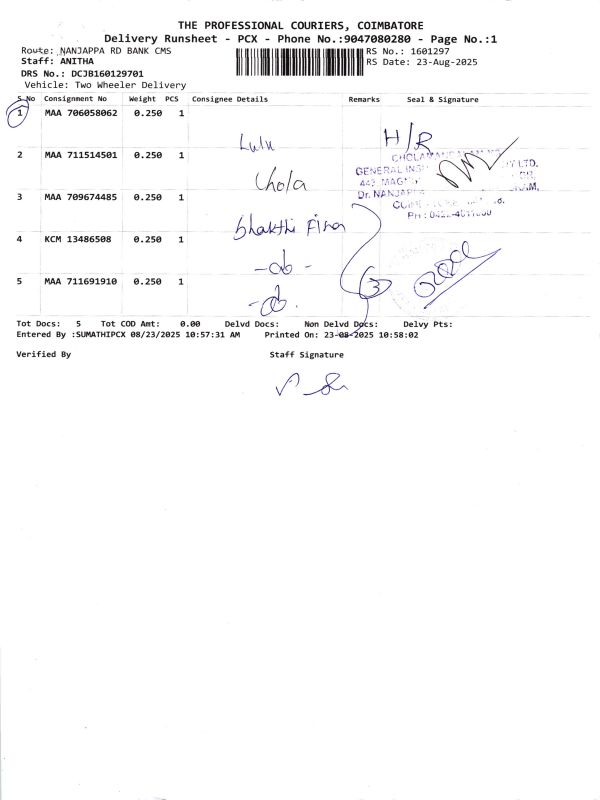 THE PROFESSIONAL COURIERS, COIMBATORE
Delivery Runsheet - PCX - Phone No.:9047080280 - Page No.:1
Route: NANJAPPA RD BANK CMS
RS No.: 1601297
Staff: ANITHA
RS Date: 23-Aug-2025
DRS No.: DCJB160129701
Vehicle: Two Wheeler Delivery
S No Consignment No Weight PCS Consignee Details Remarks Seal & Signature
1 MAA 706058062 0.250 1
Lulu H/R
2 MAA 711514501 0.250 1
Chola
GENERAL LTD.
Dr. NANJAPPA
3 MAA 709674485 0.250 1
bhakthi Finan
4 KCM 13486508 0.250 1
-do-
5 MAA 711691910 0.250 1
3
-do.
Tot Docs: 5 Tot COD Amt: 0.00 Delvd Docs: Non Delvd Docs: Delvy Pts:
Entered By :SUMATHIPCX 08/23/2025 10:57:31 AM Printed On: 23-08-2025 10:58:02
Verified By Staff Signature